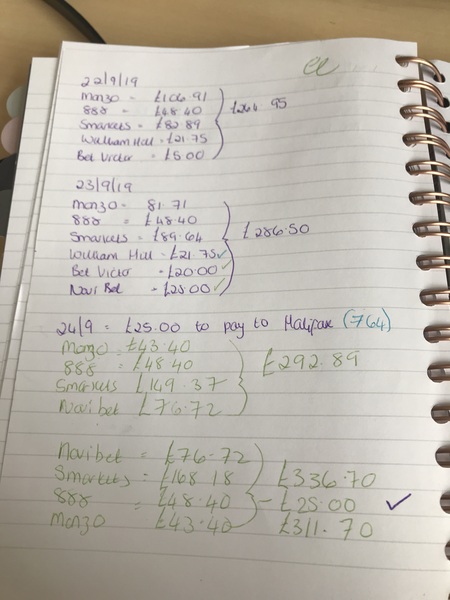 er
22/9/19
Monzo = £106.91
888 = £48.40
Smarkets = £82.89
William Hill = £21.75
Bet Victor = £5.00
£264.95
23/9/19
Monzo = 81.71
888 = £48.40
Smarkets = £89.64
William Hill = £21.75 ✓
Bet Victor = £20.00 ✓
Novi Bet = £25.00 ✓
£286.50
24/9 = £25.00 to pay to Halifax (764)
Monzo = £43.40
888 = £48.40
Smarkets £149.37
Novibet £76.72
£292.89
Novibet = £76.72
Smarkets = £168.18
888 = £48.40
Monzo £43.40
£336.70
- £25.00 ✓
£311.70